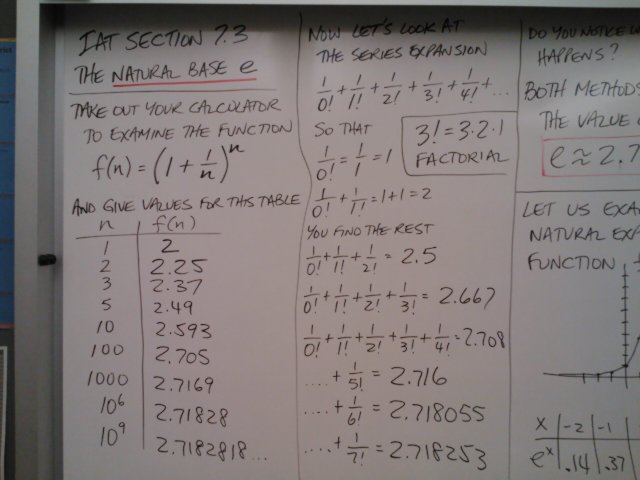 IAT SECTION 7.3
THE NATURAL BASE e
TAKE OUT YOUR CALCULATOR
TO EXAMINE THE FUNCTION
f(n) = (1 + 1/n)^n
AND GIVE VALUES FOR THIS TABLE
n f(n)
1 2
2 2.25
3 2.37
5 2.49
10 2.593
100 2.705
1000 2.7169
10^6 2.71828
10^9 2.7182818...
NOW LET'S LOOK AT
THE SERIES EXPANSION
1/0! + 1/1! + 1/2! + 1/3! + 1/4! + ...
SO THAT
1/0! = 1/1 = 1
3! = 3·2·1
FACTORIAL
1/0! + 1/1! = 1+1 = 2
YOU FIND THE REST
1/0! + 1/1! + 1/2! = 2.5
1/0! + 1/1! + 1/2! + 1/3! = 2.667
1/0! + 1/1! + 1/2! + 1/3! + 1/4! = 2.708
.... + 1/5! = 2.716
.... + 1/6! = 2.718055
.... + 1/7! = 2.718253
DO YOU NOTICE
HAPPENS?
BOTH METHODS
THE VALUE
e ≈ 2.7
LET US EXA
NATURAL EXP
FUNCTION
x -2 -1
e^x .14 .37